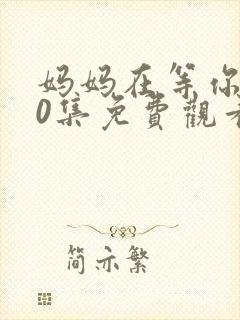 妈妈在等你
0集免費觀看
简亦繁